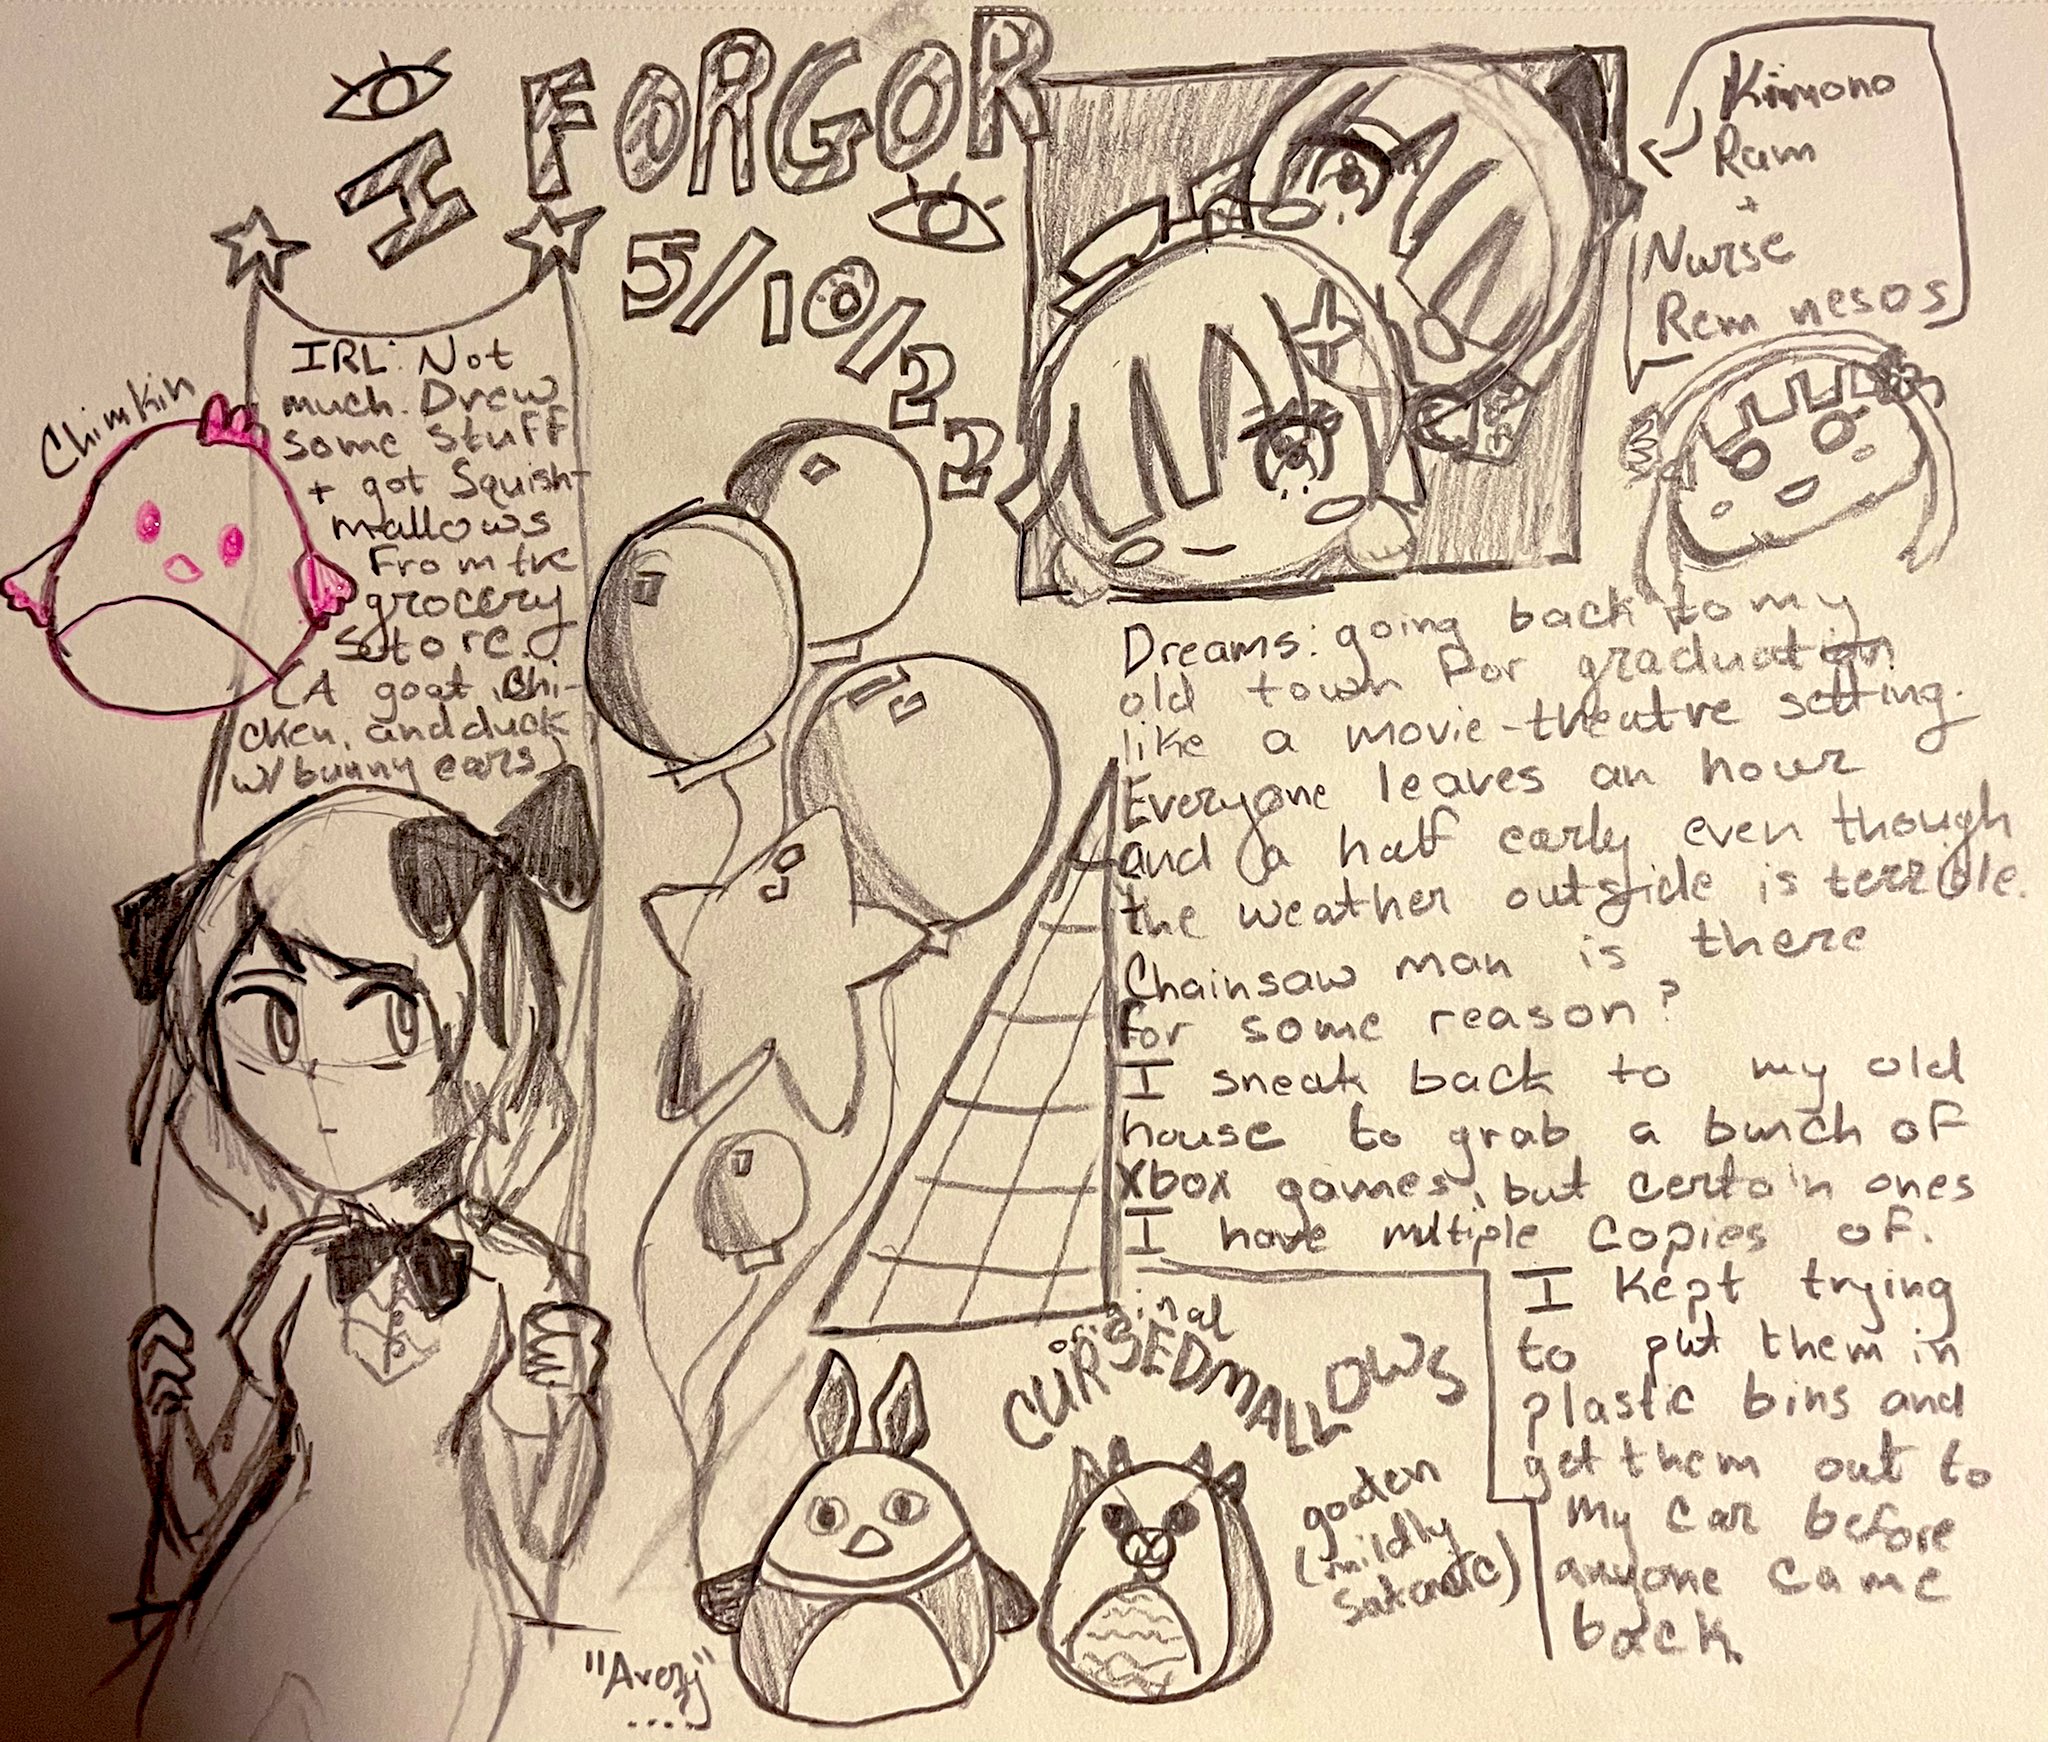 I FORGOR
5/10/22
Kimono
Ram
+
Nurse
Rem nesos
Chimkin
IRL: Not
much. Drew
some stuff
+ got Squish-
mallows
From the
grocery
store.
(A goat, chi-
cken, and duck
w/ bunny ears)
Dreams: going back to my
old town for graduation
like a movie-theatre setting.
Everyone leaves an hour
and a half early even though
the weather outside is terrible.
Chainsaw man is there
for some reason?
I sneak back to my old
house to grab a bunch of
Xbox games, but certain ones
I have multiple copies of.
I kept trying
to put them in
plastic bins and
get them out to
my car before
anyone came
back
original
CURSEDMALLOWS
goaten
(mildly
satanic)
"Avery"
....